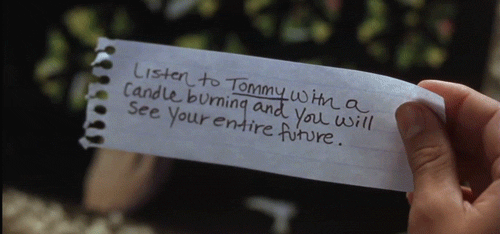 Listen to Tommy with a
candle burning and you will
see your entire future.